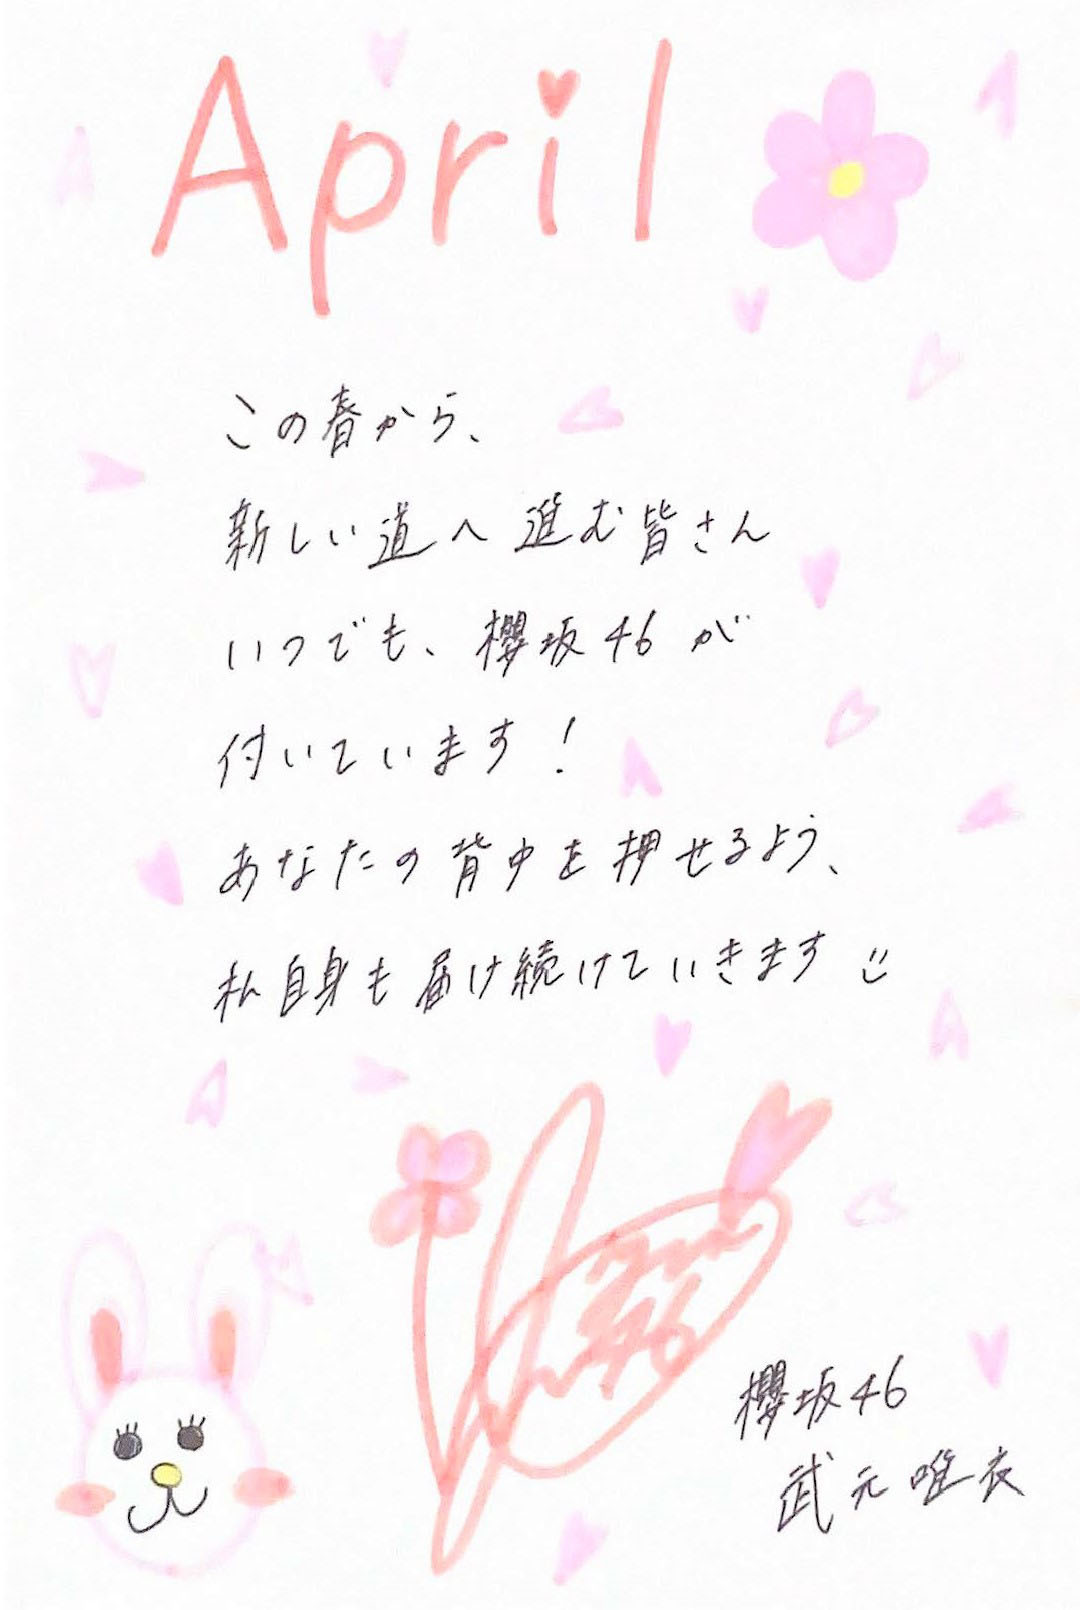 April
この春から、
新しい道へ進む皆さん
いつでも、櫻坂46が
付いています！
あなたの背中を押せるよう、
私自身も届け続けていきます
櫻坂46
武元唯衣